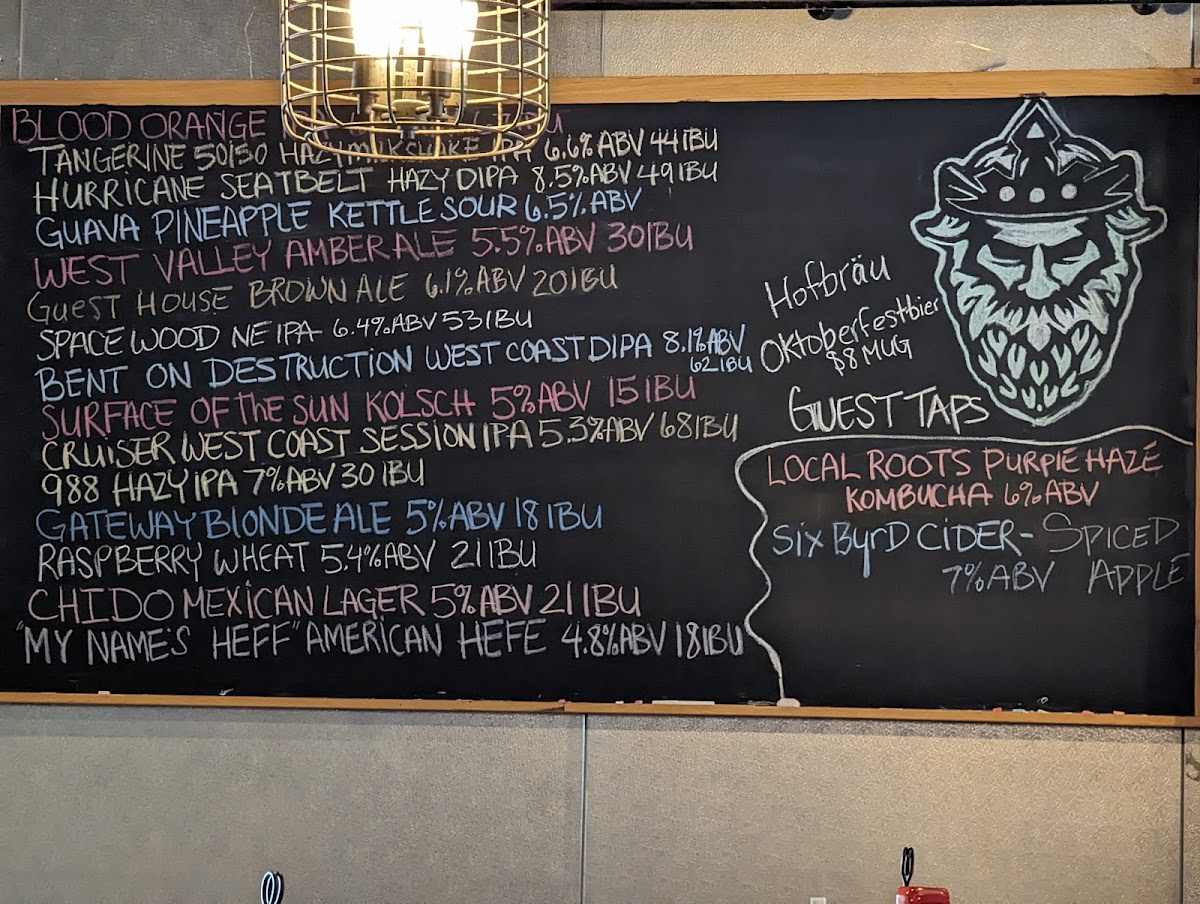 BLOOD ORANGE
TANGERINE 50150 HAZY MILKSHAKE IPA 6.6% ABV 44 IBU
HURRICANE SEATBELT HAZY DIPA 8.5% ABV 49 IBU
GUAVA PINEAPPLE KETTLE SOUR 6.5% ABV
WEST VALLEY AMBER ALE 5.5% ABV 30 IBU
GUEST HOUSE BROWN ALE 6.1% ABV 20 IBU
SPACE WOOD NE IPA 6.4% ABV 53 IBU
BENT ON DESTRUCTION WEST COAST DIPA 8.1% ABV
62 IBU
SURFACE OF ThE SUN KOLSCH 5% ABV 15 IBU
CRUISER WEST COAST SESSION IPA 5.3% ABV 68 IBU
988 HAZY IPA 7% ABV 30 IBU
GATEWAY BLONDE ALE 5% ABV 18 IBU
RASPBERRY WHEAT 5.4% ABV 21 IBU
CHIDO MEXICAN LAGER 5% ABV 21 IBU
"MY NAME'S HEFF" AMERICAN HEFE 4.8% ABV 18 IBU
Hofbräu
Oktoberfestbier
$8 MUG
GUEST TAPS
LOCAL ROOTS PURPLE HAZE
KOMBUCHA 6% ABV
Six ByrD CIDER- SPICED
7% ABV APPLE